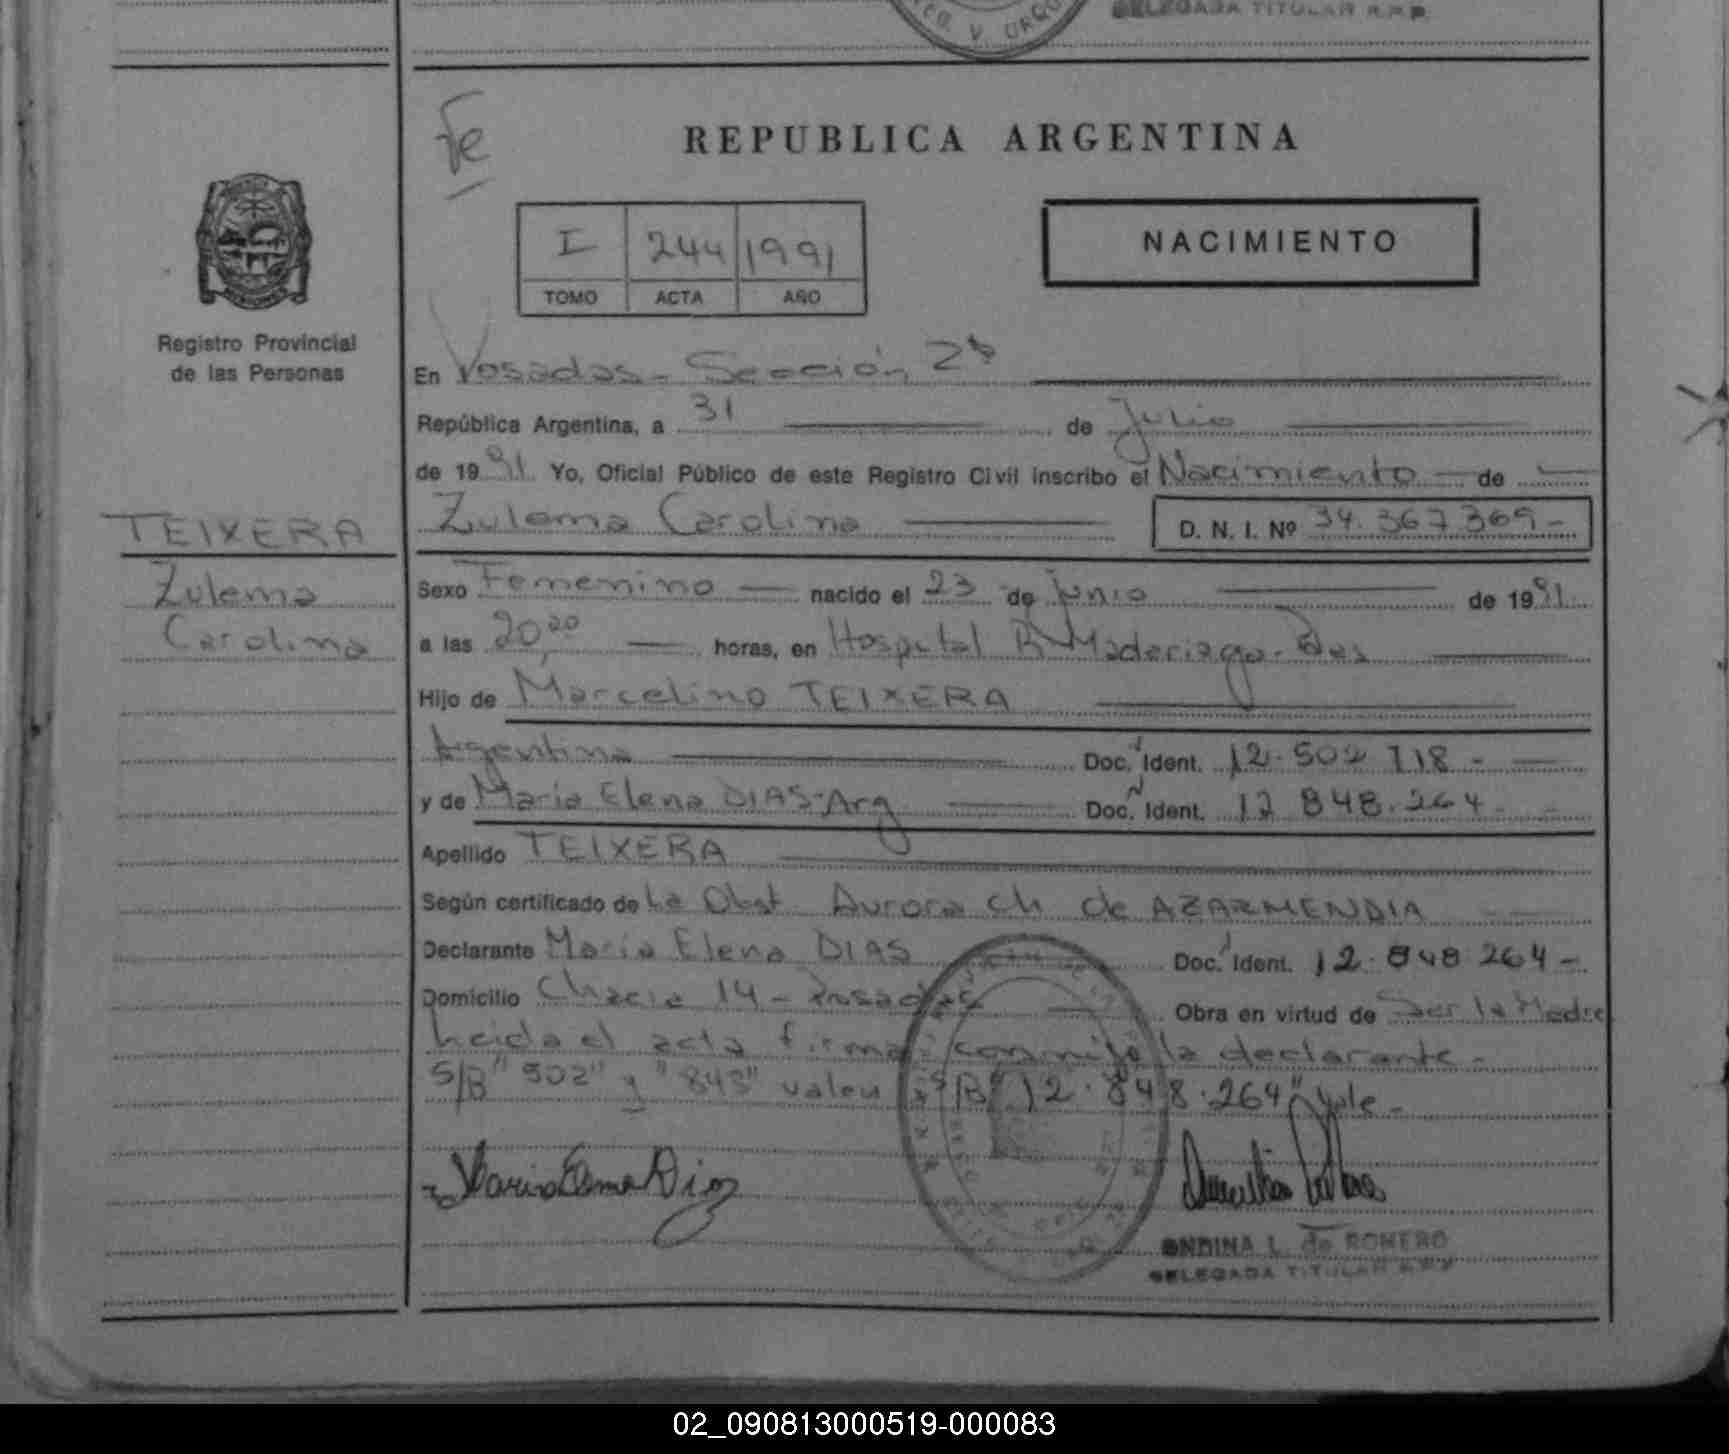 DELEGADA TITULAR R.P.P.
Fe
REPUBLICA ARGENTINA
I 244 1991
TOMO ACTA AÑO
NACIMIENTO
MISIONES
Registro Provincial
de las Personas
En Posadas - Sección 2ª
República Argentina, a 31 de Julio
de 1991 Yo, Oficial Público de este Registro Civil inscribo el Nacimiento de
Zulema Carolina D. N. I. Nº 34.367.369-
TEIXERA
Zulema
Carolina
Sexo Femenino nacido el 23 de junio de 1991
a las 20,20 horas, en Hospital R Madariaga - Pdas
Hijo de Marcelino TEIXERA
Argentina Doc. Ident. 12.502.718 -
y de María Elena DIAS-Arg Doc. Ident. 12 848.264 -
Apellido TEIXERA
Según certificado de La Obst Aurora Ch de AZARMENDIA
Declarante María Elena DIAS Doc. Ident. 12.848.264 -
Domicilio Chacra 14 - Posadas Obra en virtud de Ser la Madre
Leida el acta firma conmigo la declarante -
S/B "502" y "848" valen S/B "12.848.264" Vale -
ONDINA L. de ROMERO
DELEGADA TITULAR R.P.P.
02_090813000519-000083